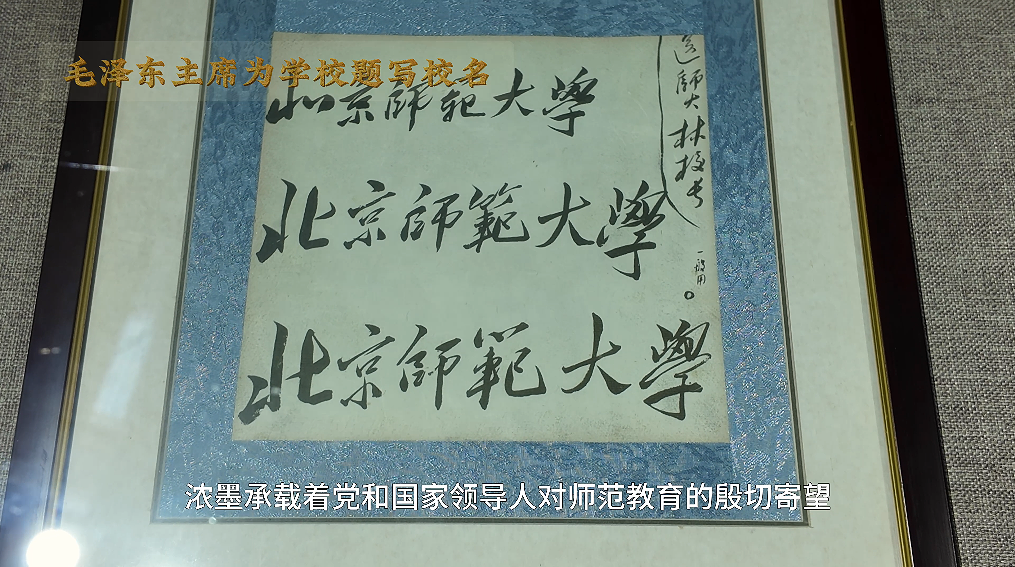 毛泽东主席为学校题写校名
北京師範大學
北京師範大學
北京師範大學
送師大
林校长
一般用
浓墨承载着党和国家领导人对师范教育的殷切寄望